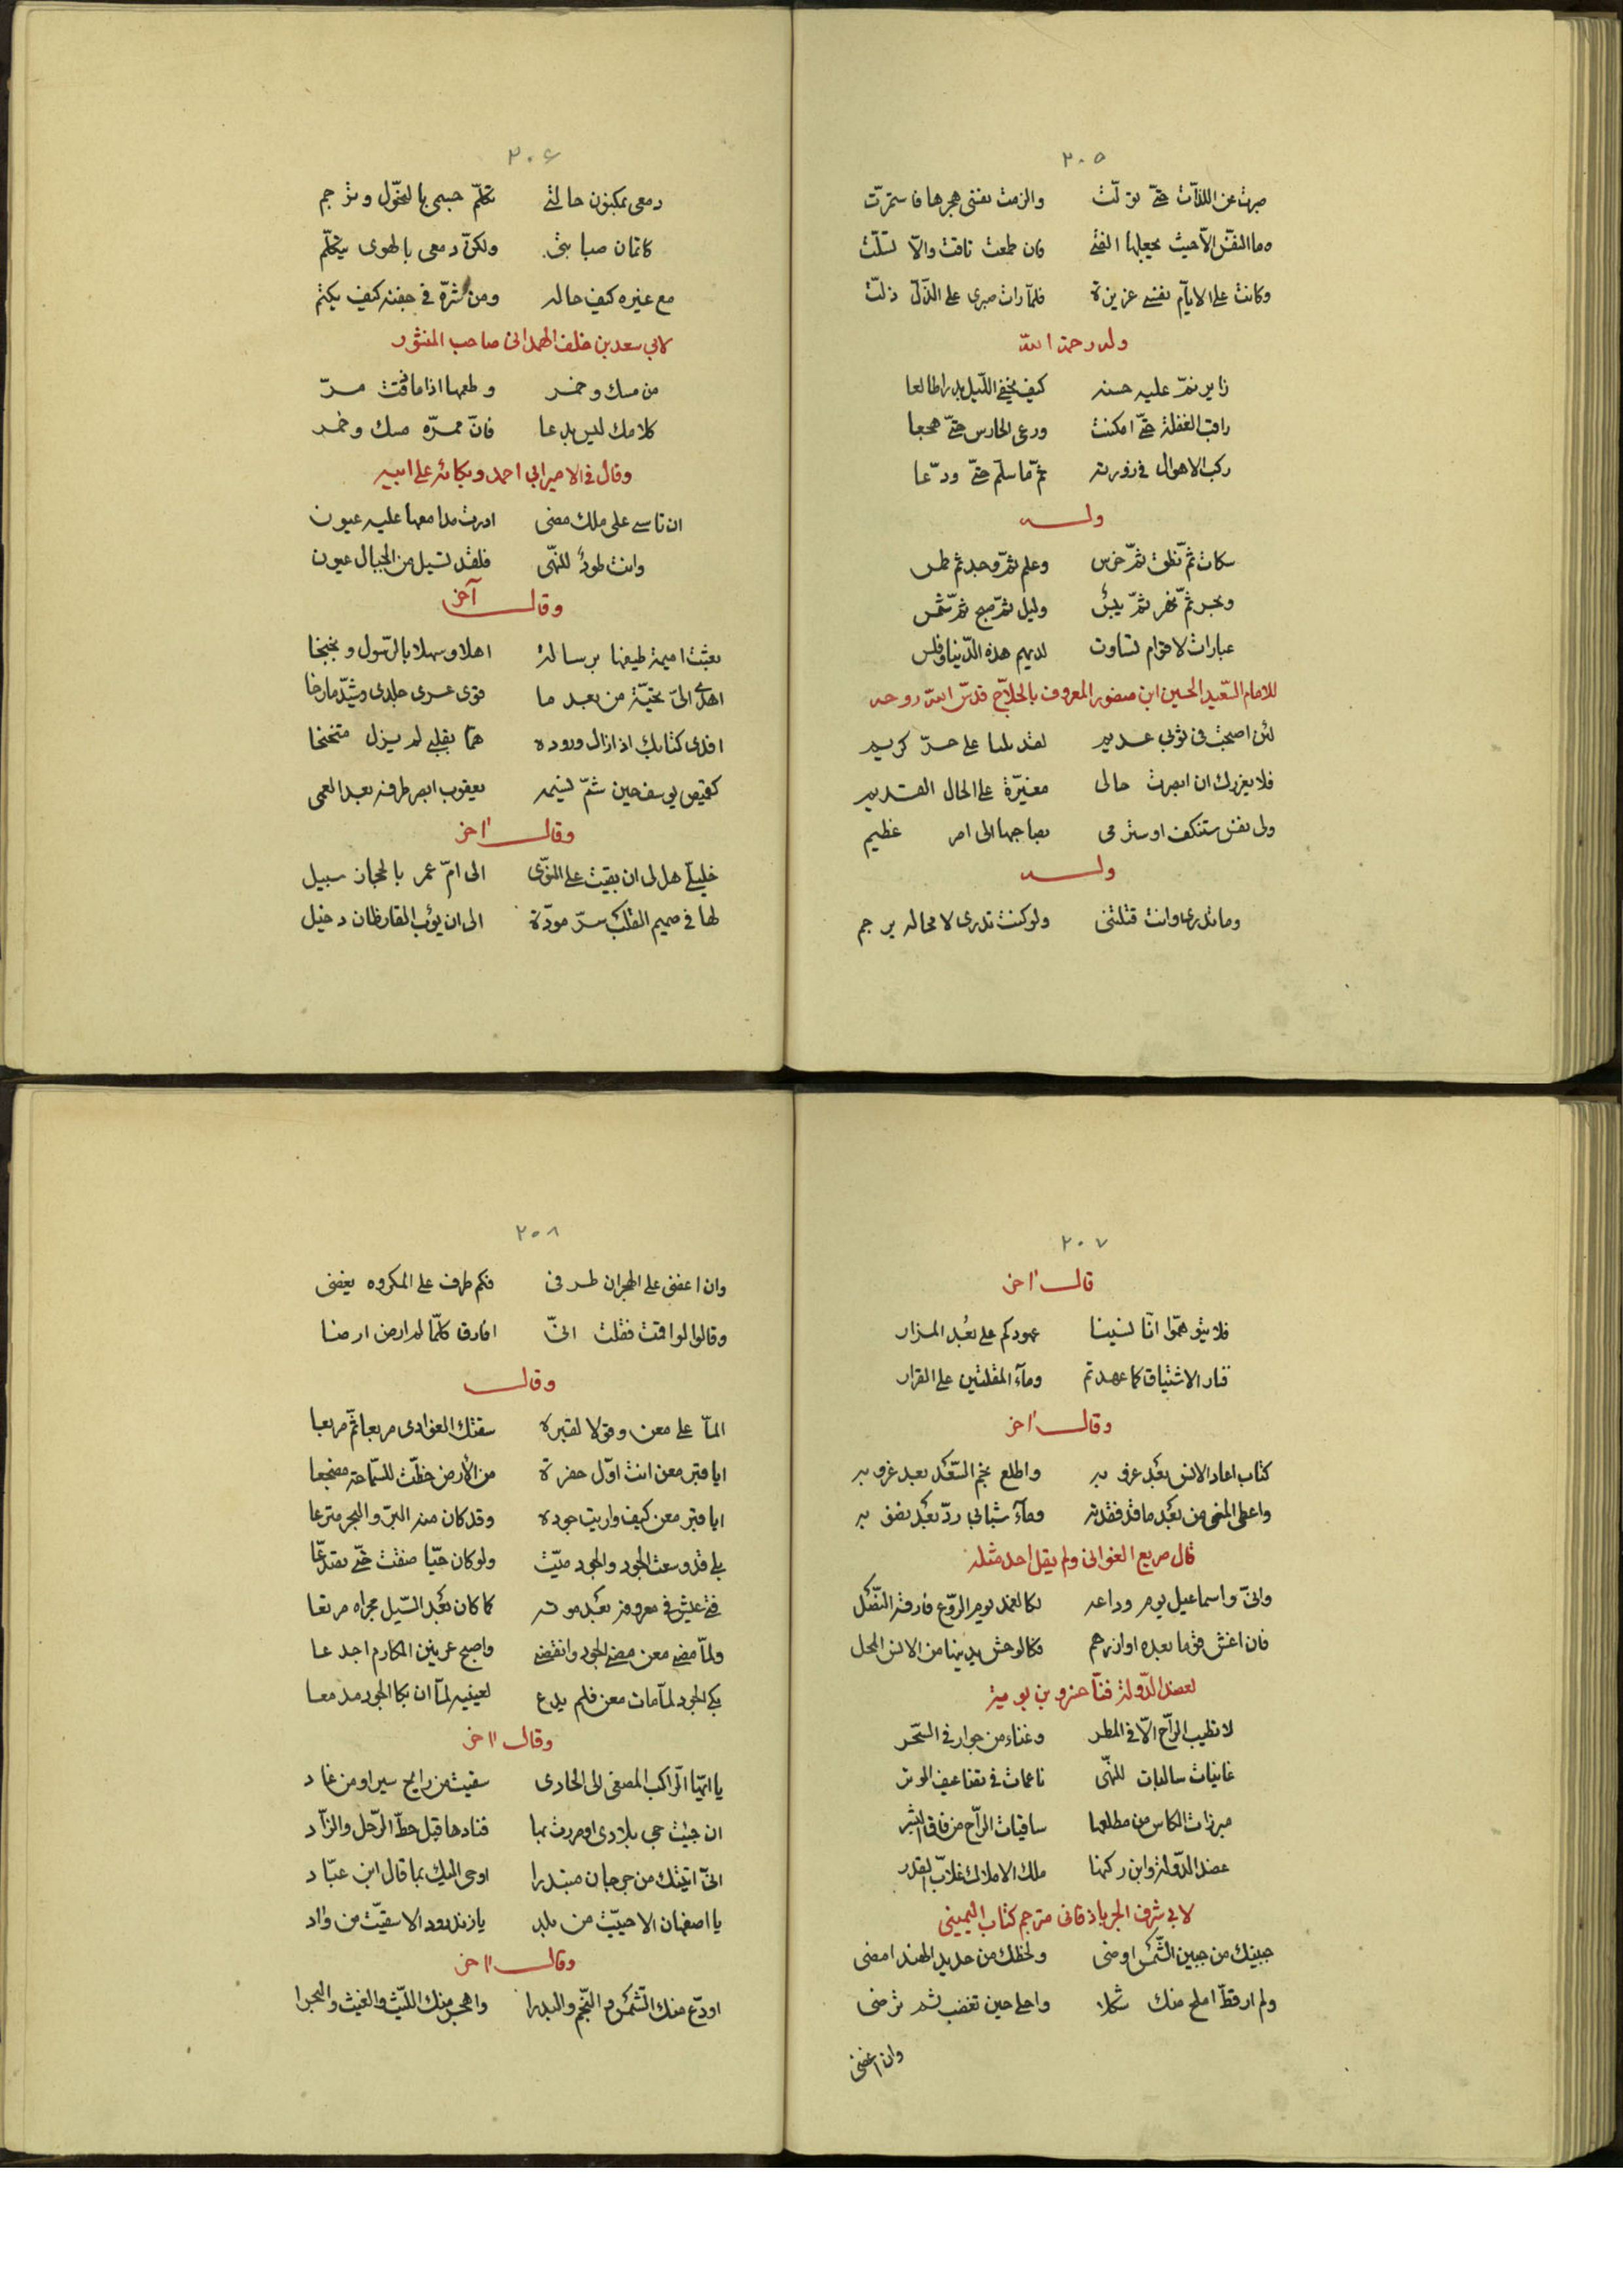 ٢٠٥
صبرت عن اللذّات حتّى تولّت والزمت نفسى هجرها فاستمرّت
وما النفس الّا حيث يجعلها الفتى فان طمعت تاقت والّا تسلّت
وكانت على الايّام نفسى عزيزة فلمّا رات صبرى على الذّلّ ذلّت
وله رحمة الله
زاير نمّ عليه حسنه كيف يخفى اللّيل بدرا طالعا
راقب الغفلة حتّى امكنت ورعى الحارس حتّى هجعا
ركب الاهوال فى زورته ثمّ ما سلّم حتّى ودّعا
وله
سكات ثمّ نطق ثمّ خرس وعلم ثمّ وجد ثم طمس
وبحر ثمّ نهر ثمّ يبس وليل ثمّ صبح ثمّ شمس
عبارات لاقوام تساوت لديهم هذه الدّنيا وفلس
للامام السّعيد الحسين ابن منصور المعروف بالحلّاج قدّس الله روحه
لئن اصبحت فى ثوبى عديم لقد بليا على حرّ كريم
فلا يغررك ان ابصرت حالى مغيّرة على الحال القديم
ولى نفس ستتلف او سترمى بصاحبها الى امر عظيم
وله
وما تدرى وانت قتلتنى ولو كنت تدرى لا محاله يرجم
٢٠٦
دمعى بمكنون حالتى تكلّم جسمى بالنحول وترجم
كاتمان صبابتى ولكنّ دمعى بالهوى يتكلّم
مع غيره كيف حاله ومن سرّه فى جفنه كيف يكتم
لابى سعد بن خلف الهمدانى صاحب المنثور
من مسك وخمر وطعمها اذا ما ذقت مرّ
كلامك ليس بدعا فانّ ممرّه مسك وخمر
وقال فى الامير ابى احمد وبكائه على ابيه
ان تاسى على ملك مضى ادرت مدامعها عليه عيون
وانت طود للنهّى فلقد تسيل من الجبال عيون
وقال آخر
بعثت اميمة طيفها برسالة اهلا وسهلا بالرّسول وبخبخا
اهدى الىّ تحيّة من بعد ما قوى عسرى جلدى وشدّ ما رخا
افدى كتابك اذ ازال وروده همّا بقلبى لم يزل متخنخا
كقميص يوسف حين شمّ نسيمه يعقوب ابصر طرفه بعد العمى
وقال اخر
خليلىّ هل لى ان بقيت على النّوى الى امّ عمر بالحجاز سبيل
لها فى صميم القلب سرّ مودّة الى ان يؤب القارظان دخيل
٢٠٧
قال اخر
فلا يتوهّموا انّا نسينا عهودكم على بعد المزار
فنار الاشتياق كما عهدتم وماء المقلتين على القرار
وقال اخر
كتاب اعاد الانس بعد عزوبه واطلع نجم السّعد بعد غروبه
واعطى المنى من بعد ما قد فقدته وماء شبابى ردّ بعد نضوبه
قال صريع الغوانى ولم يقل احد مثله
وانّى واسماعيل يوم وداعه لكالغمد يوم الرّوع فارقه النّصل
فان اغش قوما بعده او ازرهم فكالوحش يدنيها من الانس المحل
لعضد الدّولة فنّاخسرو بن بويه
لا تطيب الرّاح الّا فى المطر وغناء من جوار فى السّحر
غانيات سالبات للنهّى ناعمات فى تضاعيف الوتر
مبرزات الكاس من مطلعها ساقيات الرّاح من فاق البشر
عضد الدّولة وابن ركنها ملك الاملاك غلّاب القدر
لابى شرف الجرباذقانى مترجم كتاب اليمينى
جبينك من جبين الشّمس اوضى ولحظك من حديد الهند امضى
ولم ار قطّ املح منك شكلا واحلى حين تغضب ثم ترضى
وان اغضى
٢٠٨
وان اغضى على الهجران طرفى فكم طرف على المكروه يغضى
وقالوا لو اقمت فقلت انّى افارق كلّما لم ارض ارضا
وقال
المّا على معن وقولا لقبره سقتك الغوادى مربعا ثمّ مربعا
ايا قبر معن انت اوّل حفرة من الأرض خطّت للسّماحة مضجعا
ايا قبر معن كيف واريت جوده وقد كان منه البرّ والبحر مترعا
بلى قد وسعت الجود والجود ميّت ولو كان حيّا ضقت حتّى تصدّعا
فتى عيش فى معروفه بعد موته كما كان بعد السّيل مجراه مرتعا
ولمّا مضى معن مضى الجود وانقضى واصبح عرنين المكارم اجدعا
بكى الجود لمّا مات معن فلم يدع لعينيه لمّا ان بكا الجود مدمعا
وقال اخر
يا ايّها الرّاكب المصغى الى الحادى سقيت من رايح سيرا ومن غاد
ان جئت حى بلادى او مررت بها فنادها قبل حطّ الرّحل والزّاد
انّى اتيتك من جرجان مبتدرا اوحى اليك بما قال ابن عبّاد
يا اصفهان الا حييّت من بلد يا زندرود الا سقيّت من واد
وقال اخر
اودّع منك الشّمس والنّجم والبدرا واهجر منك اللّيث والغيث والبحرا